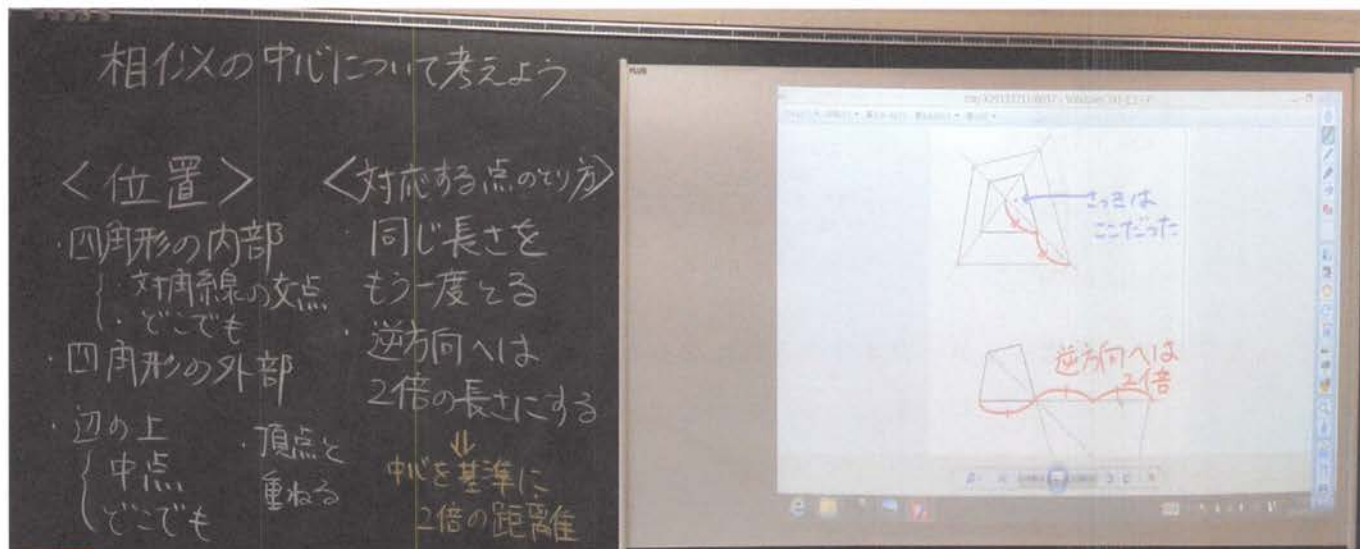 相似の中心について考えよう
＜位置＞
・四角形の内部
・対角線の交点
・どこでも
・四角形の外部
・辺の上
中点
どこでも
・頂点と
重ねる
＜対応する点のとり方＞
・同じ長さを
もう一度とる
・逆方向へは
2倍の長さにする
⇓
中心を基準に
2倍の距離
PLUS
さっきは
ここだった
逆方向へは
2倍